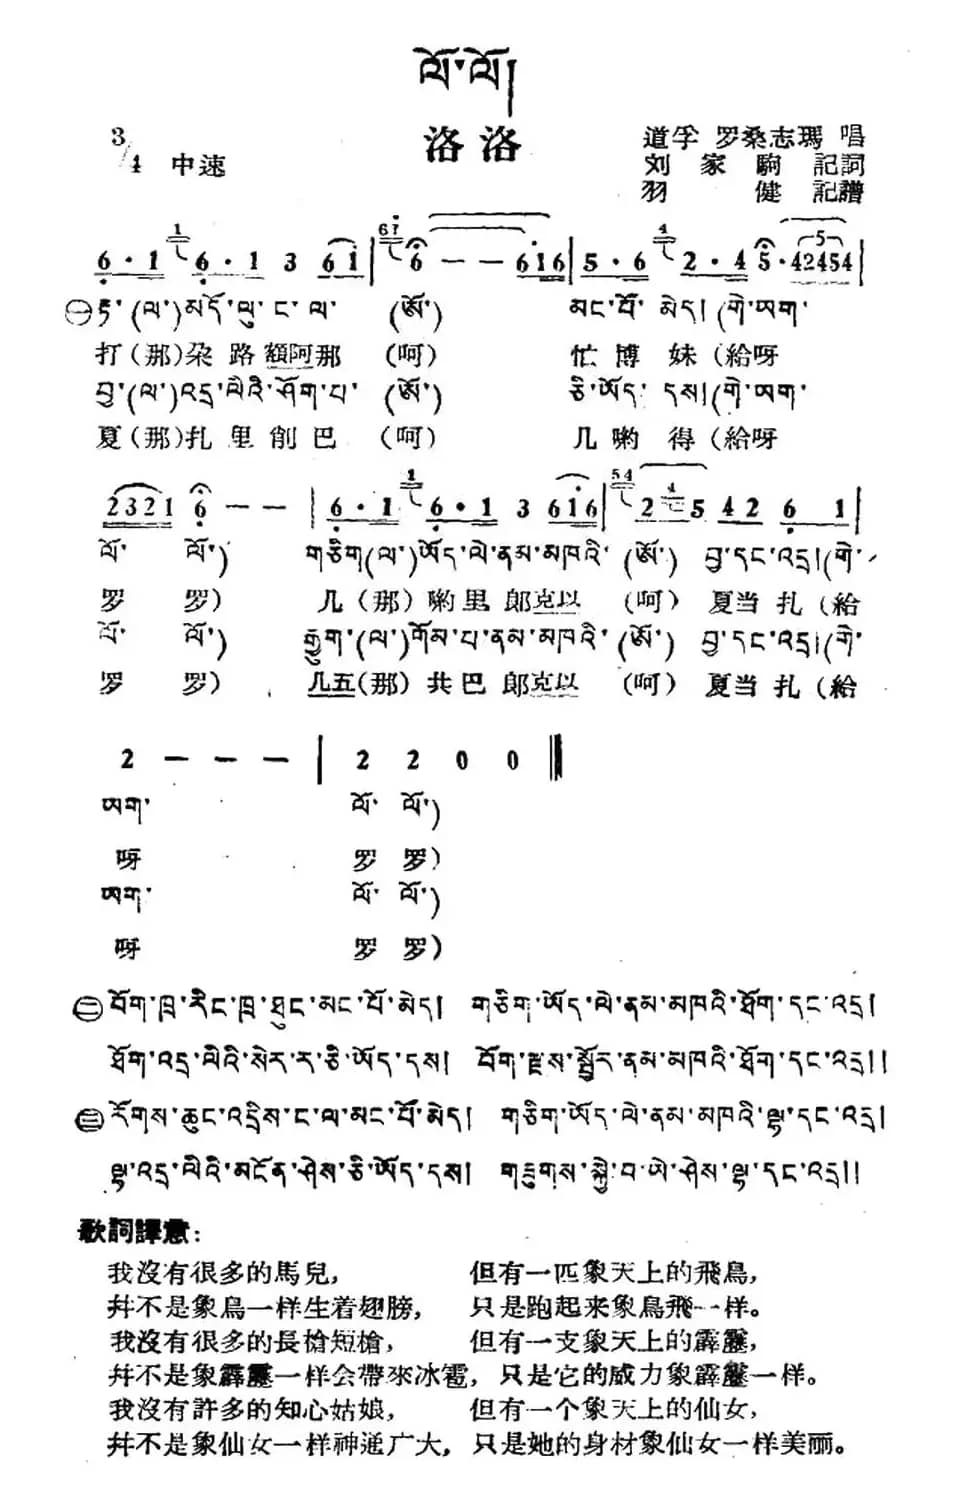 ལོ་ལོ།
洛洛
3/4 中速
道孚 罗桑志瑪 唱
刘家駒 記詞
羽健 記譜
6·1 6·1 3 61 | 6 — — 616 | 5·6 2·4 5·42454 |
㊀ རྟ་(ལ་)མདོ་ལུ་ང་ལ་ (ཨོ་) མང་པོ་མེད། (གེ་ཨག་
打(那)朶路額阿那 (呵) 忙博妹(給呀
བྱ་(ལ་)འདྲ་ལིའི་ཤོག་པ་ (ཨོ་) ཅི་ཡོད་དས། (གེ་ཨག་
夏(那)扎里削巴 (呵) 几喲得(給呀
2321 6 — — | 6·1 6·1 3 616 | 2 5 42 6 1 |
ལོ་ ལོ་) གཅིག་(ལ་)ཡོད་ལེ་ནམ་མཁའི་ (ཨོ་) བྱ་དང་འདྲ། (གེ་
罗 罗) 几(那)喲里郞克以 (呵) 夏当扎(給
ལོ་ ལོ་) རྒྱུག་(ལ་)གོམ་པ་ནམ་མཁའི་ (ཨོ་) བྱ་དང་འདྲ། (གེ་
罗 罗) 几五(那)共巴郞克以 (呵) 夏当扎(給
2 — — — | 2 2 0 0 ‖
ཨག་ ལོ་ ལོ་)
呀 罗 罗)
ཨག་ ལོ་ ལོ་)
呀 罗 罗)
㊁ བོག་ཁྲ་རིང་ཁྲ་ཐུང་མང་པོ་མེད། གཅིག་ཡོད་ལེ་ནམ་མཁའི་ཐོག་དང་འདྲ།
ཐོག་འདྲ་ལིའི་སེར་ར་ཅི་ཡོད་དས། བོག་རྫས་སྦྱོར་ནམ་མཁའི་ཐོག་དང་འདྲ།།
㊂ རོགས་ཆུང་འདྲིས་ང་ལ་མང་པོ་མེད། གཅིག་ཡོད་ལེ་ནམ་མཁའི་ལྷ་དང་འདྲ།
ལྷ་འདྲ་ལིའི་མངོན་ཤེས་ཅི་ཡོད་དས། གཟུགས་སྐྱེ་བ་ཡེ་ཤེས་ལྷ་དང་འདྲ།།
歌詞譯意:
我沒有很多的馬兒, 但有一匹象天上的飛鳥,
幷不是象鳥一样生着翅膀, 只是跑起来象鳥飛一样。
我沒有很多的長槍短槍, 但有一支象天上的霹靂,
幷不是象霹靂一样会帶來冰雹, 只是它的威力象霹靂一样。
我沒有許多的知心姑娘, 但有一个象天上的仙女,
幷不是象仙女一样神通广大, 只是她的身材象仙女一样美丽。